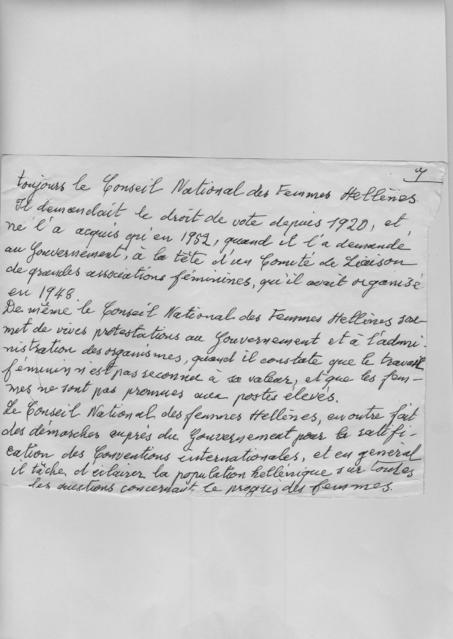 7
toujours le Conseil National des Femmes Hellènes
Il demandait le droit de vote depuis 1920, et
ne l'a acquis qu'en 1952, quand il l'a demandé
au Gouvernement, à la tête d'un Comité de Liaison
de grandes associations féminines, qu'il avait organisé
en 1948.
De même le Conseil National des Femmes Hellènes sou-
met de vives protestations au Gouvernement et à l'admi-
nistration des organismes, quand il constate que le travail
féminin n'est pas reconnu à sa valeur, et que les fem-
mes ne sont pas promues aux postes élevés.
Le Conseil National des femmes Hellènes, en outre fait
des démarches auprès du Gouvernement pour la ratifi-
cation des Conventions internationales, et en general
il tâche d'éclairer la population hellénique sur toutes
les questions concernant le progrès des femmes.